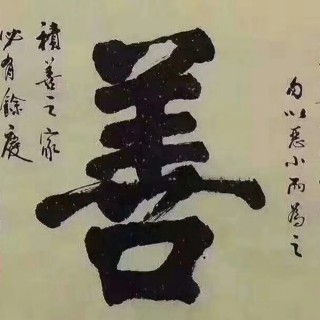 勿以惡小而為之
善
積善之家
必有餘慶